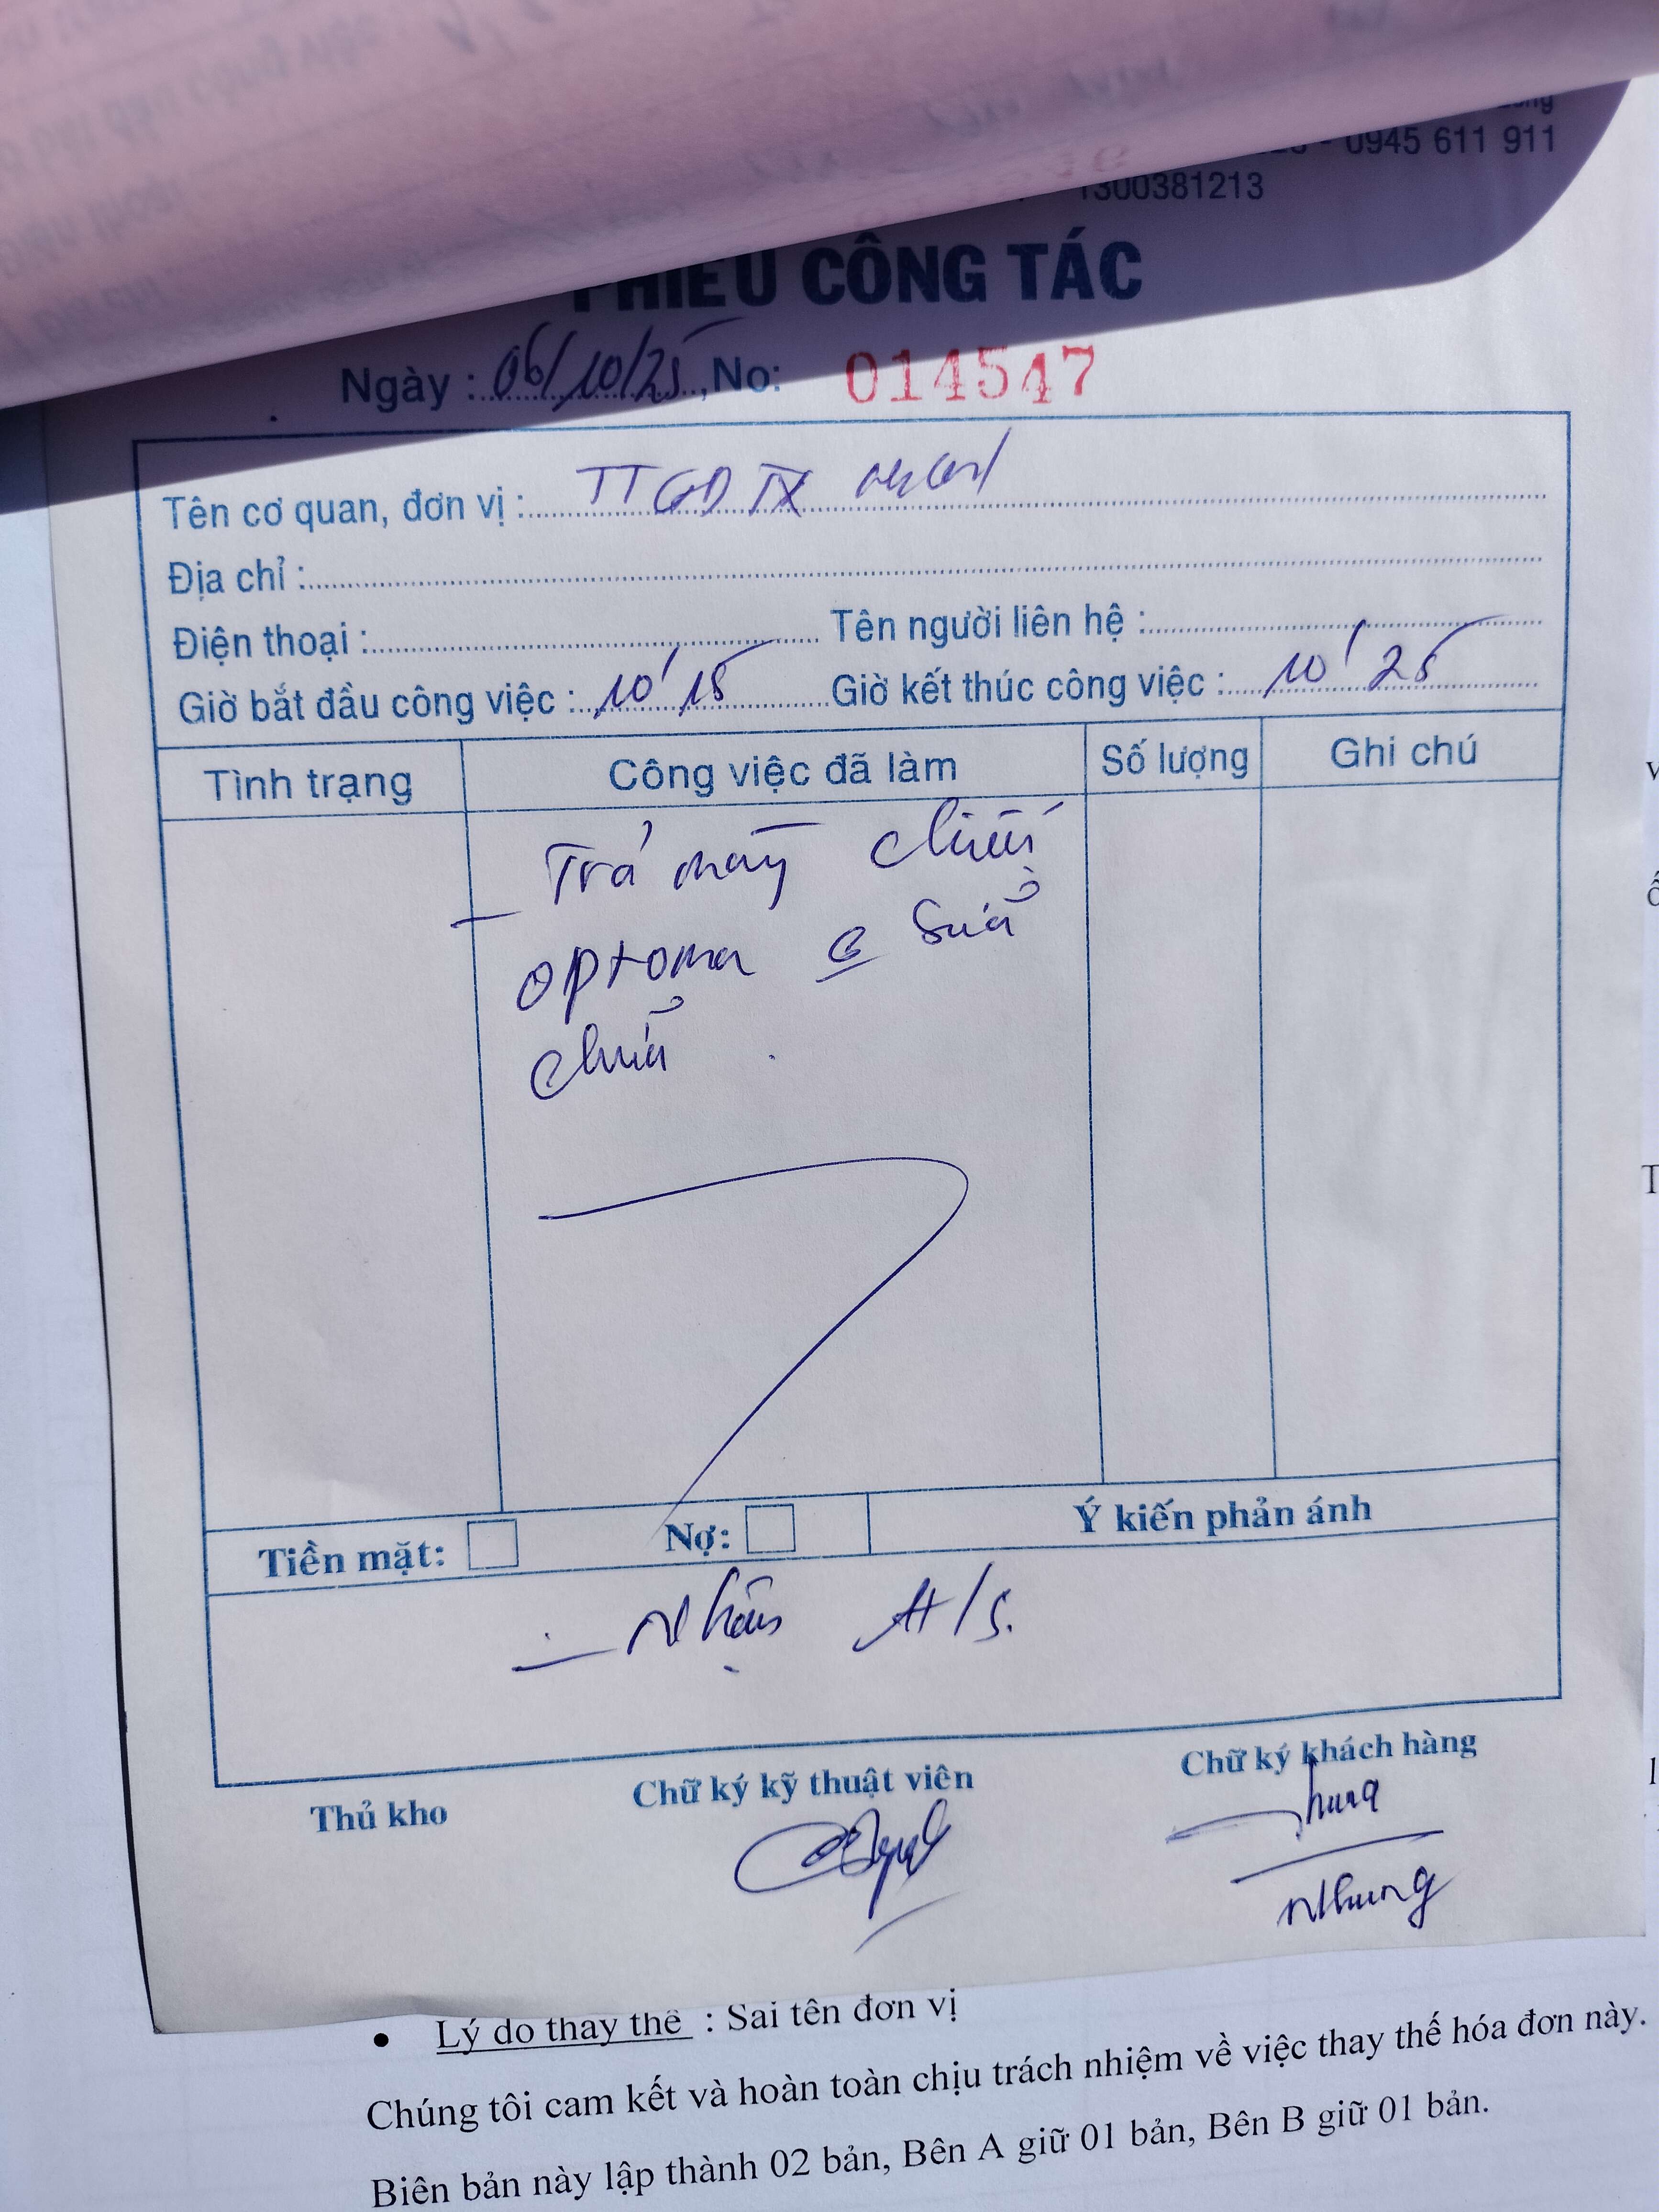 0945 611 911
1300381213
PHIẾU CÔNG TÁC
Ngày : 06/10/25, No: 014547
Tên cơ quan, đơn vị : TTGDTX
Địa chỉ :
Điện thoại : Tên người liên hệ :
Giờ bắt đầu công việc : 10' 15 Giờ kết thúc công việc : 10' 25
Tình trạng Công việc đã làm Số lượng Ghi chú
- Trả máy chiếu
optoma sửa
chữa
Tiền mặt: Nợ: Ý kiến phản ánh
- Nhận H/S.
Thủ kho Chữ ký kỹ thuật viên Chữ ký khách hàng
Nhung
• Lý do thay thế : Sai tên đơn vị
Chúng tôi cam kết và hoàn toàn chịu trách nhiệm về việc thay thế hóa đơn này.
Biên bản này lập thành 02 bản, Bên A giữ 01 bản, Bên B giữ 01 bản.